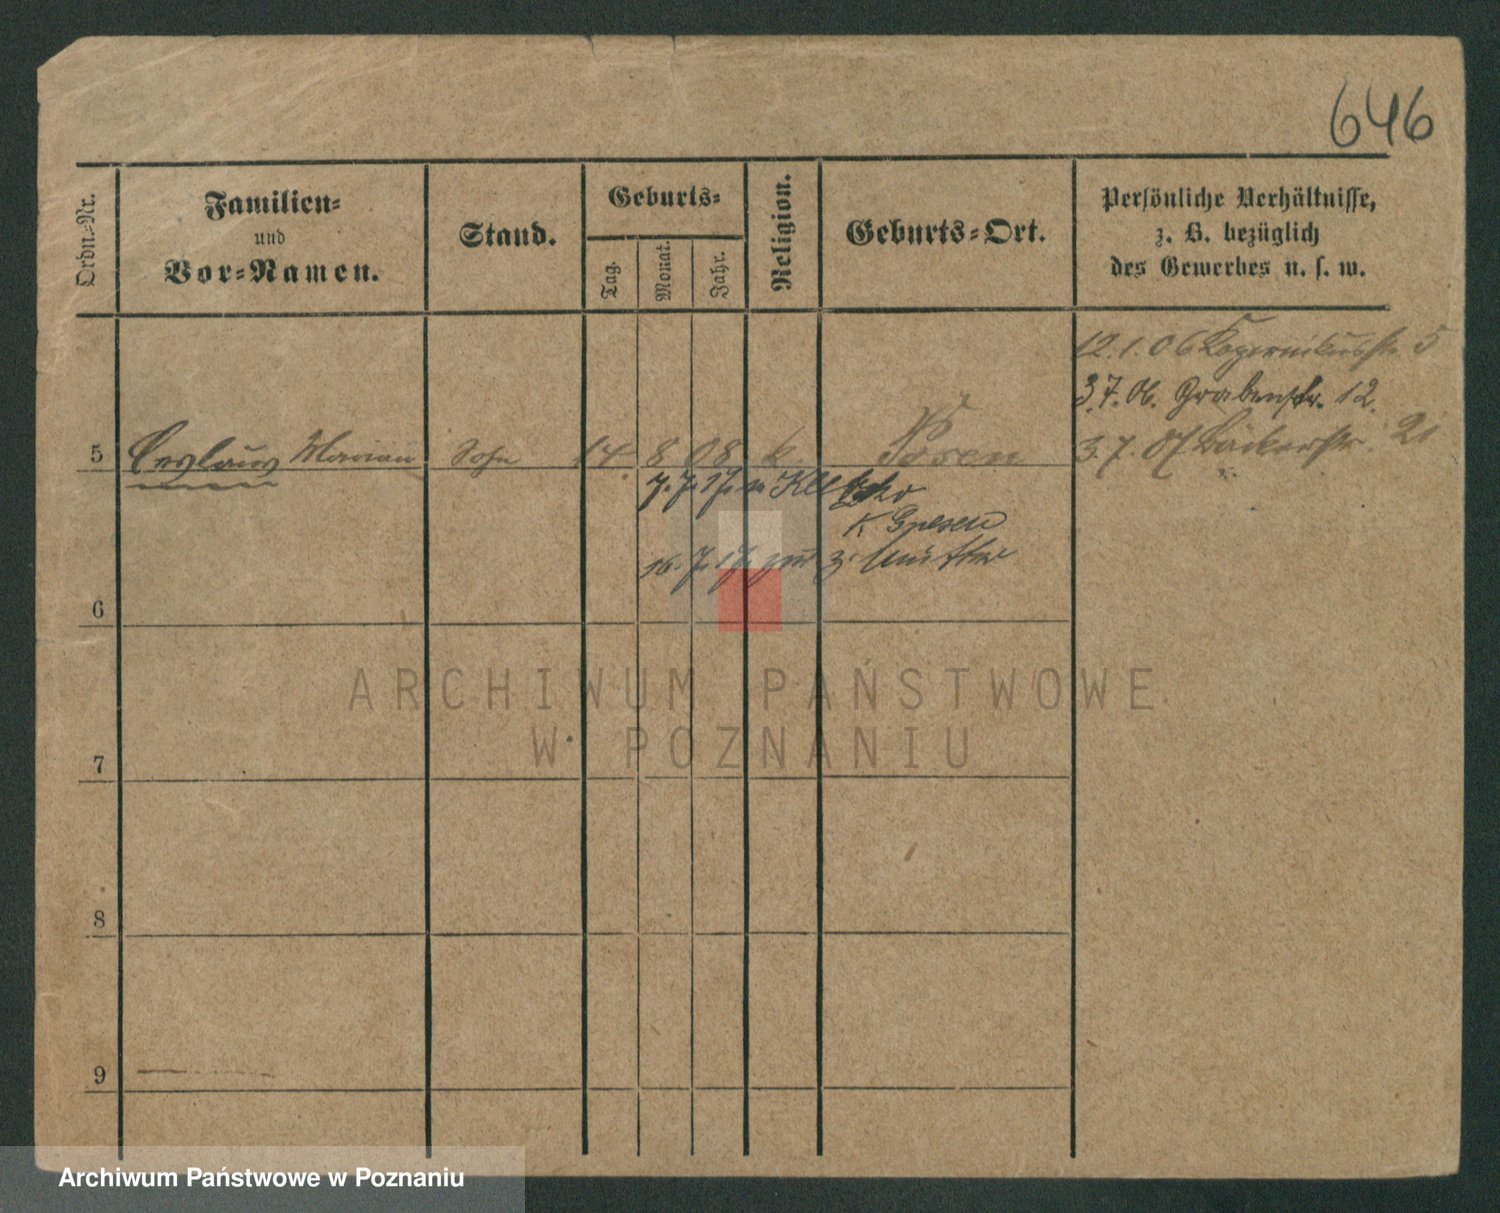 646
Ordn.-Nr.
Familien-
und
Vor-Namen.
Stand.
Geburts-
Tag.
Monat.
Jahr.
Religion.
Geburts-Ort.
Persönliche Verhältnisse,
z. B. bezüglich
des Gewerbes u. s. w.
12.1.06 Kopernikusstr. 5
3.7.06. Grabenstr. 12.
3.7.07 Bäckerstr. 21
5 Ceslaus Marian Sohn 14 8 08 k. Posen
7.7.17. n.
K Gnesen
16.7.17 zur z. Mutter
6
7
8
9
ARCHIWUM PAŃSTWOWE
W POZNANIU
Archiwum Państwowe w Poznaniu